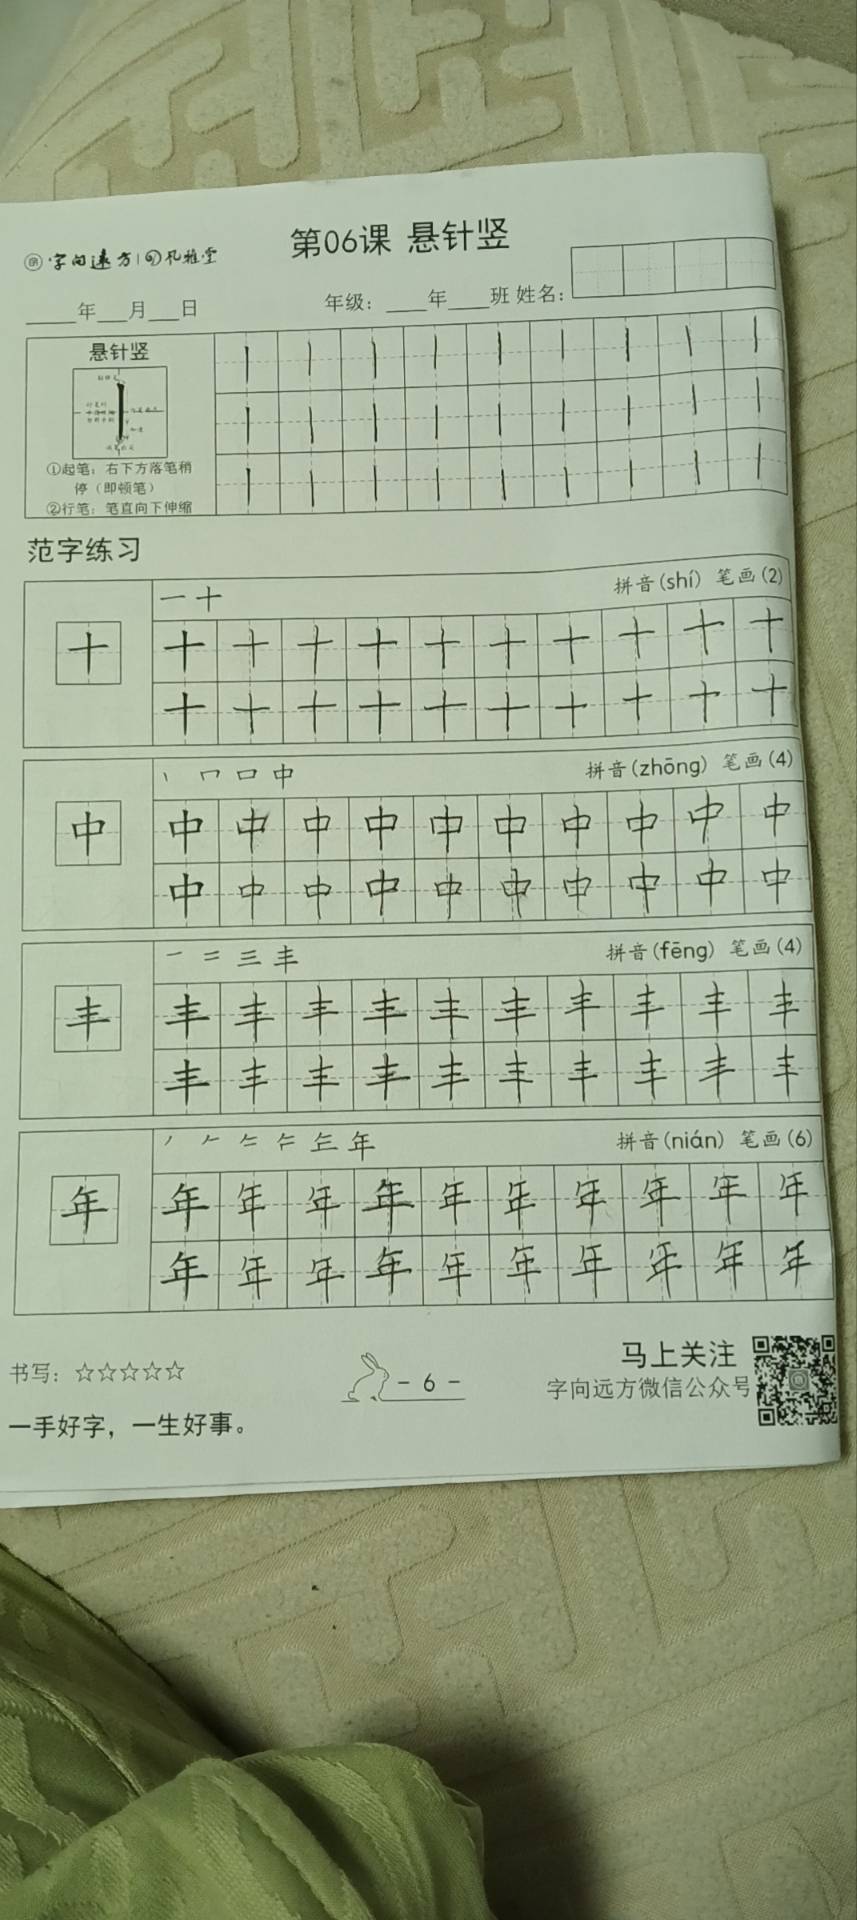 第06课 悬针竖
字向远方
____年____月____日 年级：____年____班 姓名：
悬针竖
①起笔：右下方落笔稍
停（即顿笔）
②行笔：笔直向下伸缩
范字练习
一 十 拼音(shí) 笔画(2)
十 十 十 十 十 十 十 十 十 十 十
十 十 十 十 十 十 十 十 十 十
丨 冂 口 中 拼音(zhōng) 笔画(4)
中 中 中 中 中 中 中 中 中 中 中
中 中 中 中 中 中 中 中 中 中
一 二 三 丰 拼音(fēng) 笔画(4)
丰 丰 丰 丰 丰 丰 丰 丰 丰 丰 丰
丰 丰 丰 丰 丰 丰 丰 丰 丰 丰
年 拼音(nián) 笔画(6)
年 年 年 年 年 年 年 年 年 年 年
年 年 年 年 年 年 年 年 年 年
书写：☆☆☆☆☆
- 6 -
马上关注
字向远方微信公众号
一手好字，一生好事。